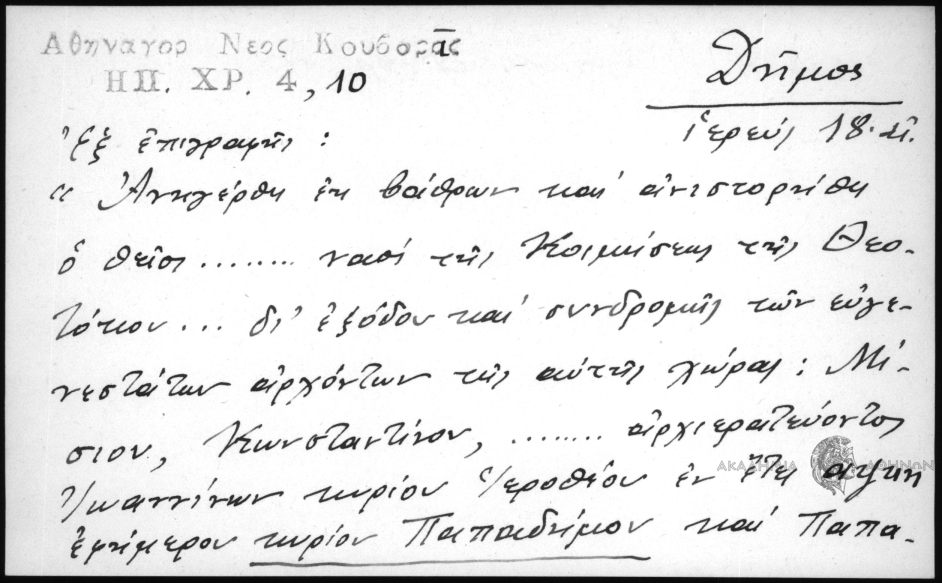 Αθηναγορ Νεος Κουβαρᾶς
ΗΠ. ΧΡ. 4, 10
Δῆμος
ἱερεύς 18. αἰ.
Ἐξ ἐπιγραφῆς :
« Ἀνηγέρθη ἐκ βάθρων καὶ ἀνιστορήθη
ὁ θεῖος ........ ναός τῆς Κοιμήσεως τῆς Θεο-
τόκου ... δι' ἐξόδου καί συνδρομῆς τῶν εὐγε-
νεστάτων ἀρχόντων τῆς αὐτῆς χώρας : Μί-
σιου, Κωνσταντίνου, ....... ἀρχιερατεύοντος
Ἰωαννίνων κυρίου Ἱεροθέου ἐν ἔτει αψκη
ἐφημέρου κυρίου Παπαδήμου καί Παπα-
ΑΚΑΔΗΜΙΑ ΑΘΗΝΩΝ